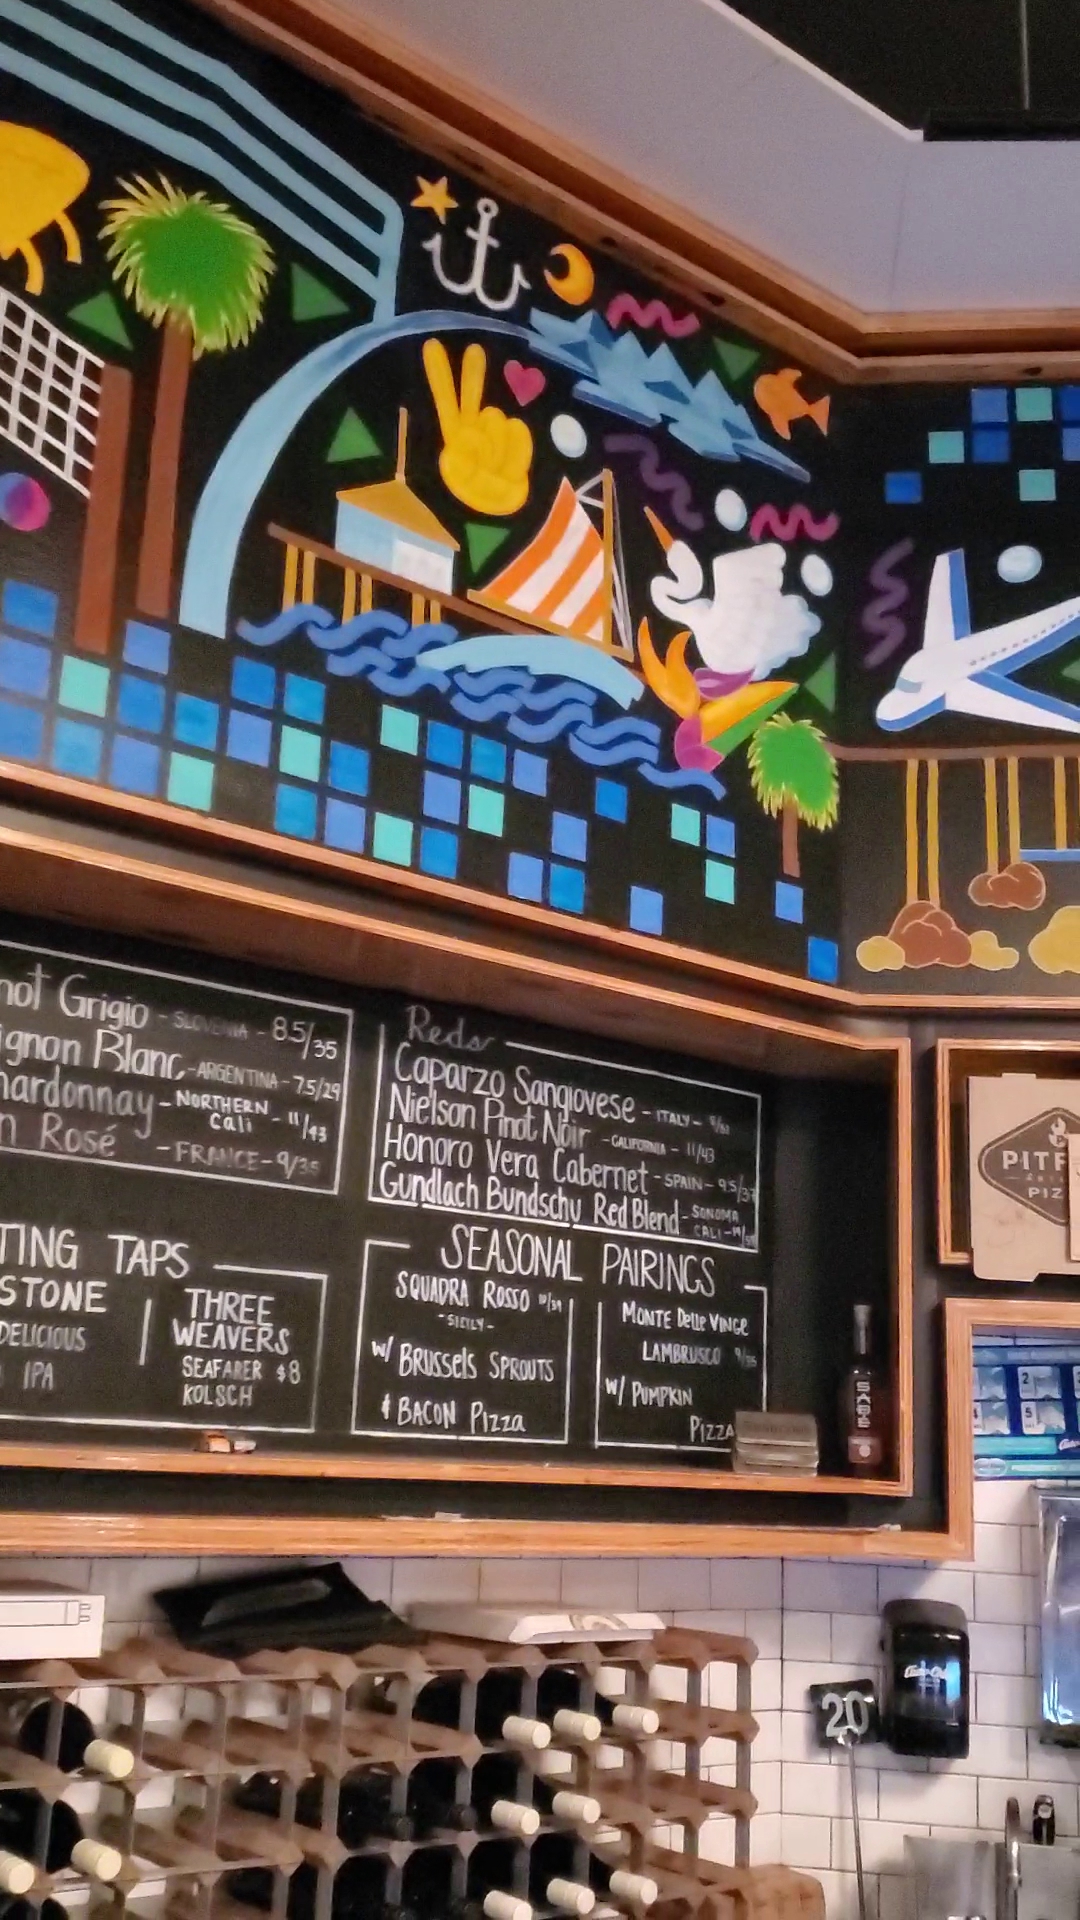 not Grigio - SLOVENIA - 8.5/35
ignon Blanc - ARGENTINA - 7.5/29
hardonnay - NORTHERN Cali - 11/43
n Rosé - FRANCE - 9/35
Reds
Caparzo Sangiovese - ITALY -
Nielson Pinot Noir - CALIFORNIA - 11/43
Honoro Vera Cabernet - SPAIN - 9.5/37
Gundlach Bundschu Red Blend - SONOMA CALI -
TING TAPS
STONE
DELICIOUS
IPA
THREE
WEAVERS
SEAFARER $8
KOLSCH
SEASONAL PAIRINGS
SQUADRA ROSSO 10/39
- SICILY -
w/ BRUSSELS SPROUTS
& BACON Pizza
MONTE Delle VINGE
LAMBRUSCO 9/35
w/ PUMPKIN
PIZZA
PITF
PIZ
SABÉ
2
4
5
20